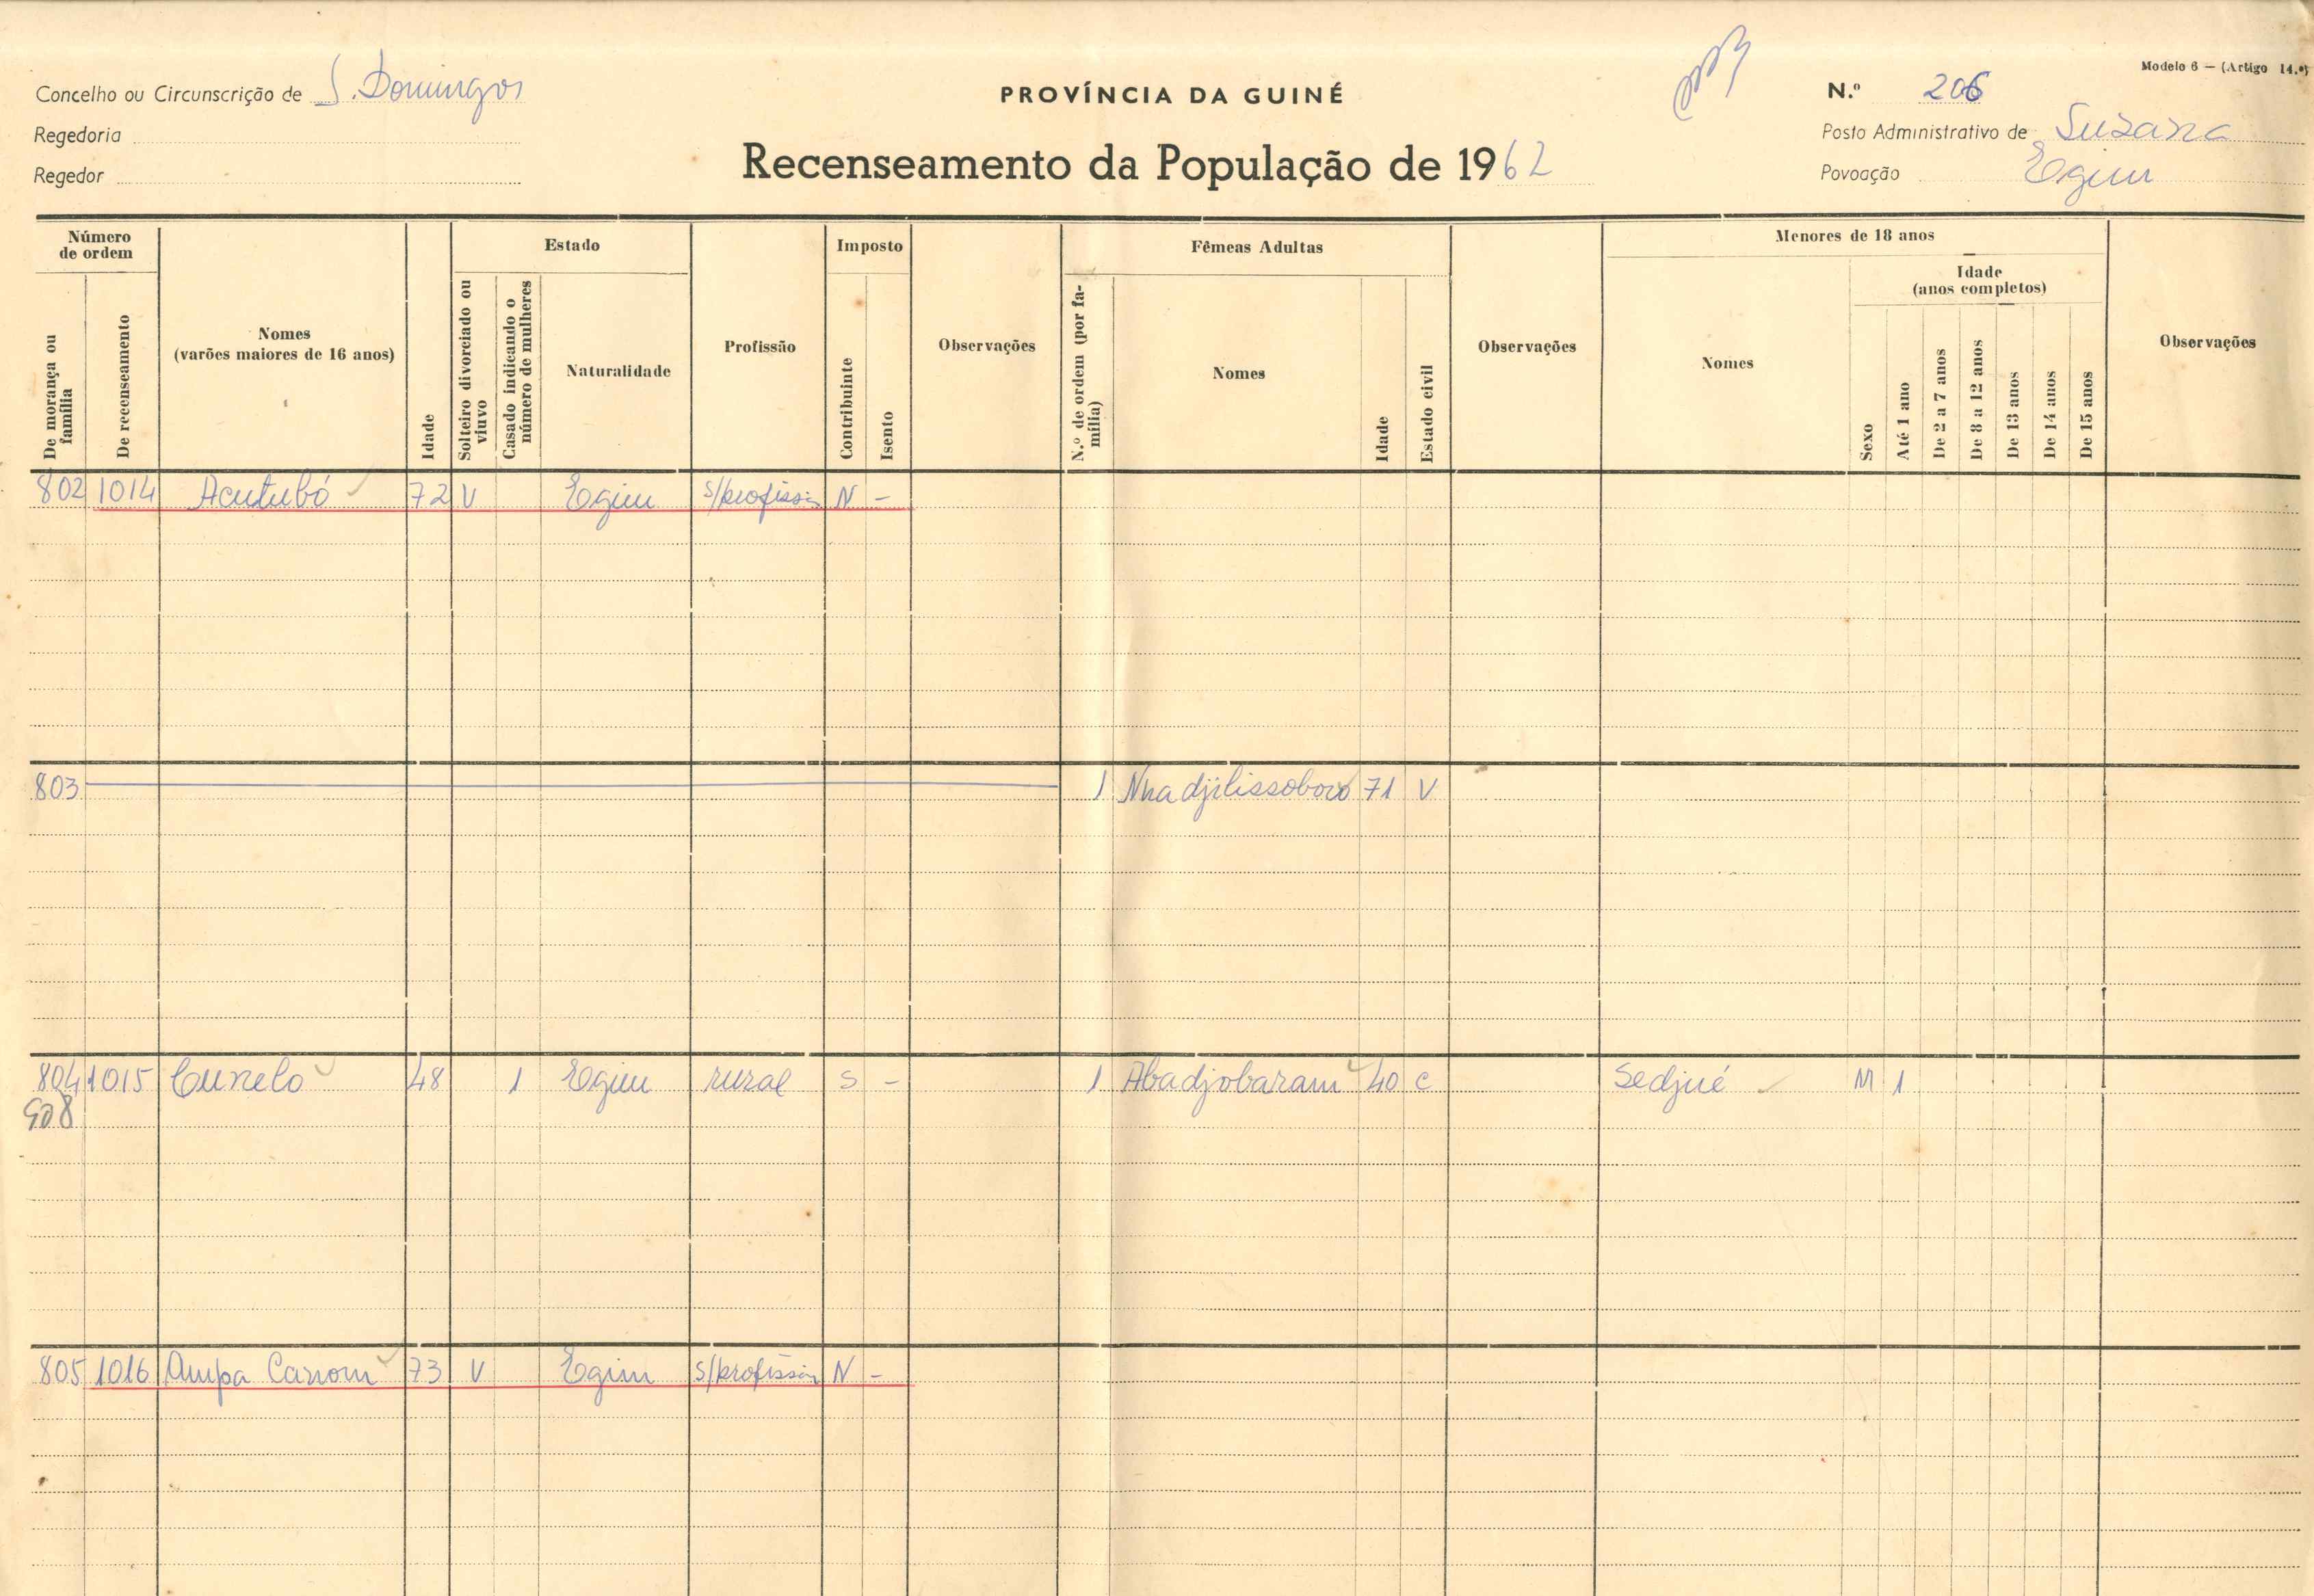 Modelo 6 — (Artigo 14.º)
Concelho ou Circunscrição de S. Domingos
PROVÍNCIA DA GUINÉ
N.º 206
Regedoria
Posto Administrativo de Suzana
Recenseamento da População de 1962
Regedor
Povoação Egim
Número de ordem
Estado
Imposto
Fêmeas Adultas
Menores de 18 anos
De morança ou família
De recenseamento
Nomes
(varões maiores de 16 anos)
Idade
Solteiro divorciado ou viuvo
Casado indicando o número de mulheres
Naturalidade
Profissão
Contribuinte
Isento
Observações
N.º de ordem (por família)
Nomes
Idade
Estado civil
Observações
Nomes
Idade
(anos completos)
Sexo
Até 1 ano
De 2 a 7 anos
De 8 a 12 anos
De 13 anos
De 14 anos
De 15 anos
Observações
802 1014 Acutubó 72 V Egim s/profissão N -
803 1 Nhadjilissoboro 71 V
804 1015 Cunelo 48 1 Egim rural S - 1 Abadjobaram 40 C Sedjué M 1
908
805 1016 Ampa Canom 73 V Egim s/profissão N -